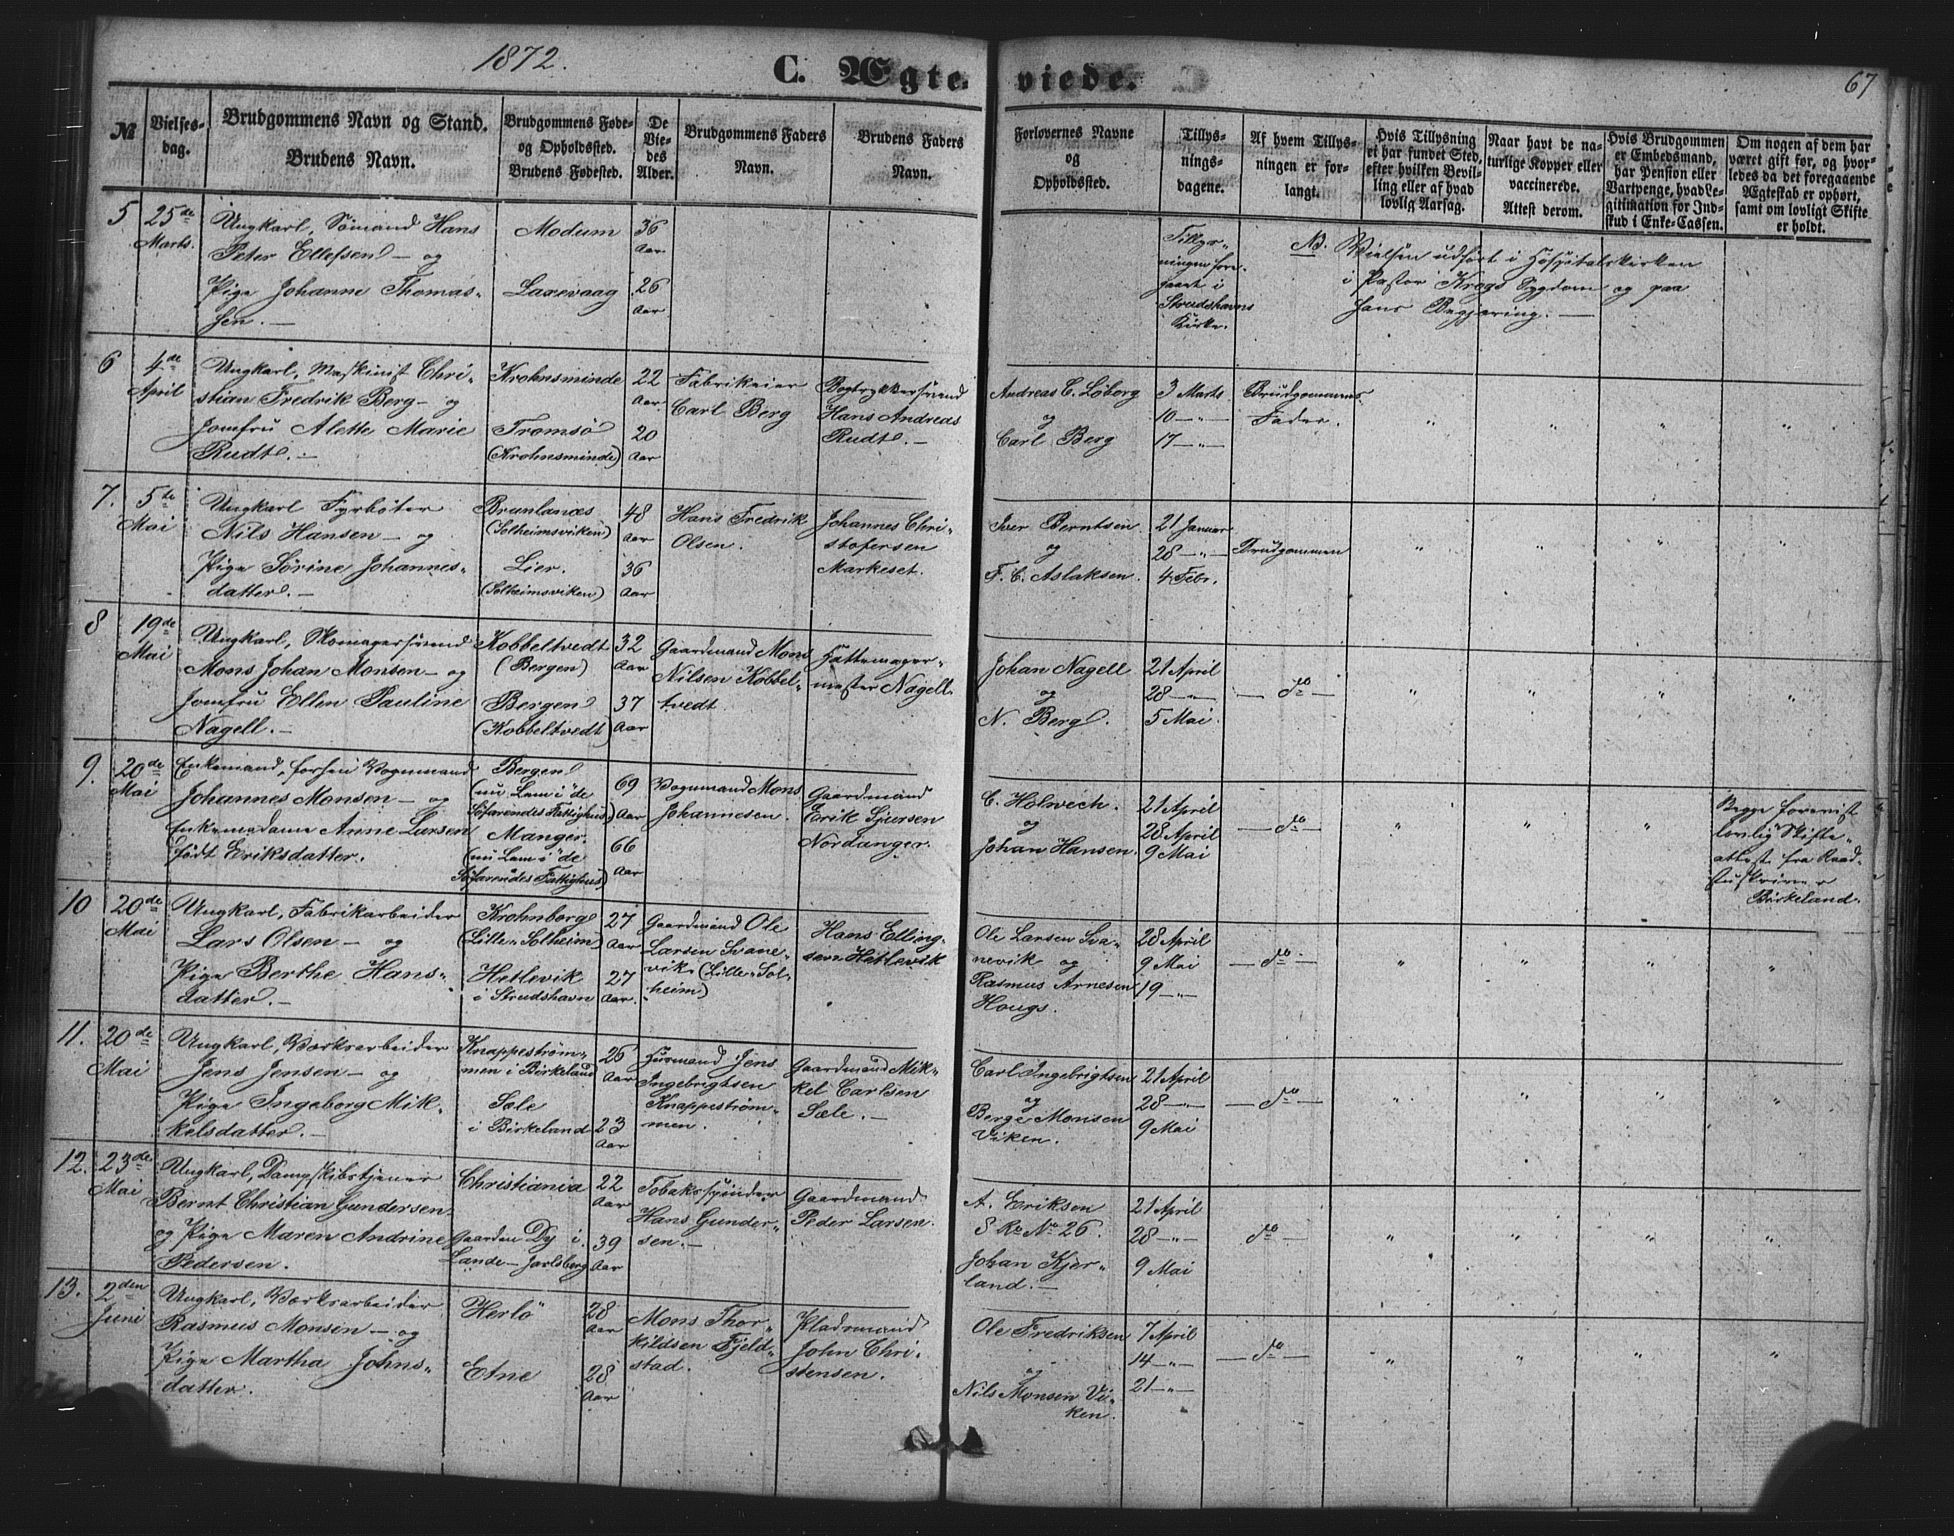 1872.
C. Ægte-
viede.
67
№
Vielses-
dag.
Brudgommens Navn og Stand.
Brudens Navn.
Brudgommens Føde-
og Opholdssted.
Brudens Fødested.
De
Vie-
des
Alder.
Brudgommens Faders
Navn.
Brudens Faders
Navn.
Forlovernes Navne
og
Opholdssted.
Tillys-
nings-
dagene.
Af hvem Tillys-
ningen er for-
langt.
Hvis Tillysning
ei har fundet Sted,
efter hvilken Bevil-
ling eller af hvad
lovlig Aarsag.
Naar havt de na-
turlige Kopper eller
vaccinerede.
Attest derom.
Hvis Brudgommen
er Embedsmand,
har Pension eller
Vartpenge, hvad Le-
gitimation for Ind-
skud i Enke-Cassen.
Om nogen af dem har
været gift før, og hvor-
ledes da det foregaaende
Ægteskab er ophørt,
samt om lovligt Skifte
er holdt.
5
25de
Marts.
Ungkarl, Sømand Hans
Peter Ellefsen — og
Pige Johanne Thomas-
sen. —
Modum
Laxevaag
36
Aar
26
Aar
Tillys-
ningen fore-
gaaet i
Strudshavns
Kirke.
NB. Vielsen udført i Hospitalskirken
i Pastor Krogs Sygdom og paa
hans Begjæring. —
6
4de
April
Ungkarl, Maskinist Chri-
stian Fredrik Berg — og
Jomfru Alette Marie
Rudt. —
Krohnsminde
Tromsö
(Krohnsminde)
22
Aar
20
Aar
Fabrikeier
Carl Berg
Bogtrykkersvend
Hans Andreas
Rudt. —
Andreas C. Löborg
og
Carl Berg
3 Marts
10 — „ —
17 — „ —
Brudgommens
Fader.
7.
5te
Mai
Ungkarl Fyrböter
Nils Hansen — og
Pige Sörine Johannes-
datter. —
Brunlanæs
(Solheimsviken)
Lier.
(Solheimsviken)
48
Aar
36
Aar
Hans Fredrik
Olsen.
Johannes Chri-
stofersen
Markeset.
Iver Berntsen
og
F. C. Aslaksen.
21 Januar
28 — „ —
4 Febr.
Brudgommen
8
19de
Mai
Ungkarl, Skomagersvend
Mons Johan Monsen — og
Jomfru Ellen Pauline
Nagell. —
Kobbeltvedt
(Bergen)
Bergen
(Kobbeltvedt)
32
Aar
37
Aar
Gaardmand Mons
Nilsen Kobbel-
tvedt
Hattemager-
mester Nagell.
Johan Nagell
og
N. Berg.
21 April
28 — „ —
5 Mai.
— do —
9.
20de
Mai
Enkemand, forhen Vognmand
Johannes Monsen — og
Enkemadame Anne Larsen
(født Eriksdatter.
Bergen
(nu Lem i de
Söfarendes Fattighus)
Manger.
(nu Lem i de
Söfarendes Fattighus)
69
Aar
66
Aar
Vognmand Mons
Johannesen.
Gaardmand
Erik Sjursen
Nordanger.
C. Holvech.
og
Johan Hansen.
21 April
28 April
9 Mai
— do —
Begge forevist
lovlig Skifte-
attest fra Raad-
stuskriver
Birkeland.
10
20de
Mai
Ungkarl, Fabrikarbeider
Lars Olsen — og
Pige Berthe Hans-
datter. —
Krohnborg
(Lille-Solheim)
Hetlevik
i Strudshavn
27
Aar
27
Aar.
Gaardmand Ole
Larsen Svane-
vik (Lille-Sol-
heim)
Hans Elling-
sen Hetlevik
Ole Larsen Sva-
nevik og
Rasmus Arnesen
Hougs.
28 April
9 Mai
19 — „ —
— do —
11.
20de
Mai
Ungkarl, Værksarbeider
Jens Jensen — og
Pige Ingeborg Mik-
kelsdatter. —
Knappeström-
men i Birkeland
Sæle
i Birkeland
26
Aar
23
Aar
Husmand Jens
Ingebrigtsen
Knappeström-
men.
Gaardmand Mik-
kel Carlsen
Sæle. —
Carl Ingebrigtsen
og
Berge Monsen
Viken.
21 April
28 — „ —
9 Mai
— do —
12.
23de
Mai
Ungkarl, Dampskibstjener
Bernt Christian Gundersen
og Pige Maren Andrine
Pedersen.
Christiania
Gaarden Dy i
Lande — Jarlsberg
22
Aar
39
Aar
Tobaksspinder
Hans Gunder-
sen. —
Gaardmand
Peder Larsen.
A. Eriksen
8 Ro No 26.
Johan Kjer-
land. —
21 April
28 — „ —
9 Mai
do —
13.
2den
Juni
Ungkarl, Værksarbeider
Rasmus Monsen — og
Pige Martha Johns-
datter.
Herlö
Etne
28
Aar
28
Aar
Mons Thor-
kildsen Fjeld-
stad.
Pladsmand
John Chri-
stensen.
Ole Fredriksen
og
Nils Monsen Vi-
ken.
7 April
14 — „ —
21 — „ —
— do —